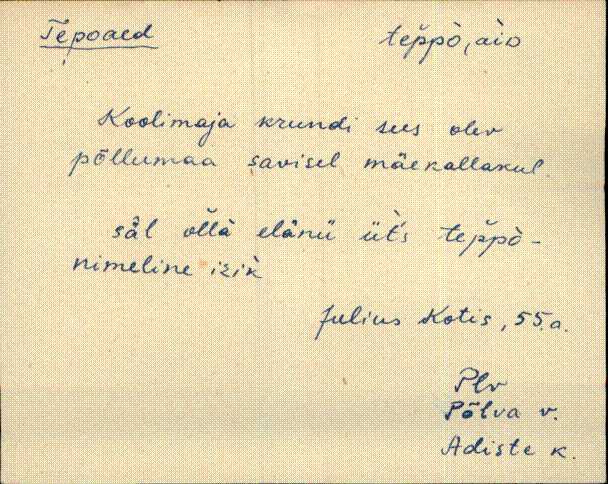 Tepoaed
teppo, aio
Koolimaja krundi sees olev
põllumaa savisel mäekallakul.
säl õllà elänü üt́s teppò-
nimeline iźik
Julius Kotis, 55.a.
Plv
Põlva v.
Adiste k.